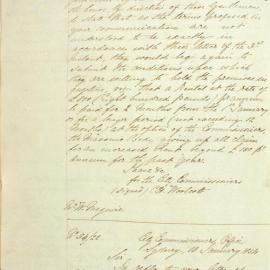 by direction of these Gentlemen
to that as the terms proposed in
your communication are not
understood to be exactly in
accordance with their letter of the 3rd
Instant, they would beg again to
submit the conditions upon which
they are willing to hold the premises in
question, viz that a Rental at the rate of
£800 (Eight hundred pounds) per annum
to be paid for 6 months from the 1 January
or for a longer period (not exceeding 12
months) at the option of the Commissioners
the giving up all claim
for an increased Rent beyond £
annum for the past year.
I have &c
for the City Commissioners
(signed) Woolcott
City Commissioners Office
Sydney, 10 January 1854
Sir
In reply to your letter of